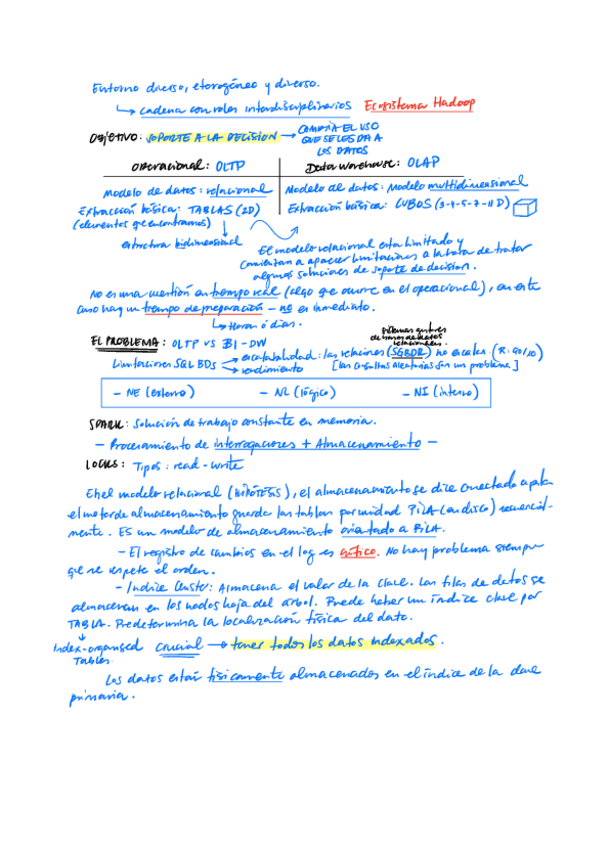 Entorno diverso, eterogéneo y diverso.
↳ cadena con roles interdisciplinarios Ecosistema Hadoop
OBJETIVO: SOPORTE A LA DECISION → CAMBIA EL USO
QUE SE LES DA A
LOS DATOS
Operacional: OLTP Data Warehouse: OLAP
Modelo de datos: relacional Modelo de datos: Modelo multidimensional
Extracción básica: TABLAS (2D) Extracción básica: CUBOS (3-4-5-7-11 D)
(elementos que encontramos)
estructura bidimensional
El modelo relacional esta limitado y
comienzan a aparecer limitaciones a la hora de tratar
algunas soluciones de soporte de decision.
No es una cuestión en tiempo real (algo que ocurre en el operacional), en este
caso hay un tiempo de preparación - no es inmediato.
↳ Horas ó días.
EL PROBLEMA: OLTP VS BI-DW
sistemas gestores
de bases de datos
relacionales
Limitaciones SQL BDs → escalabilidad: las relaciones (SGBDR) no escalan. (R: 90/10)
→ rendimiento [las consultas aleatorias son un problema]
- NE (externo) - NL (lógico) - NI (interno)
SPARK: Solución de trabajo constante en memoria.
- Procesamiento de interrogaciones + Almacenamiento -
LOCKS: Tipos: read - write
En el modelo relacional (HIPÓTESIS), el almacenamiento se dice orientado a fila
el motor de almacenamiento guarda las tablas por unidad FILA (en disco) secuencial-
mente. Es un modelo de almacenamiento orientado a FILA.
- El registro de cambios en el log es crítico. No hay problema siempre
que se respete el orden.
- Indice Cluster: Almacena el valor de la clave. Las filas de datos se
almacenan en los nodos hoja del árbol. Puede haber un índice clave por
TABLA. Predetermina la localización física del dato.
Index-organised crucial → tener todos los datos indexados.
Tables
Los datos están físicamente almacenados en el índice de la clave
primaria.